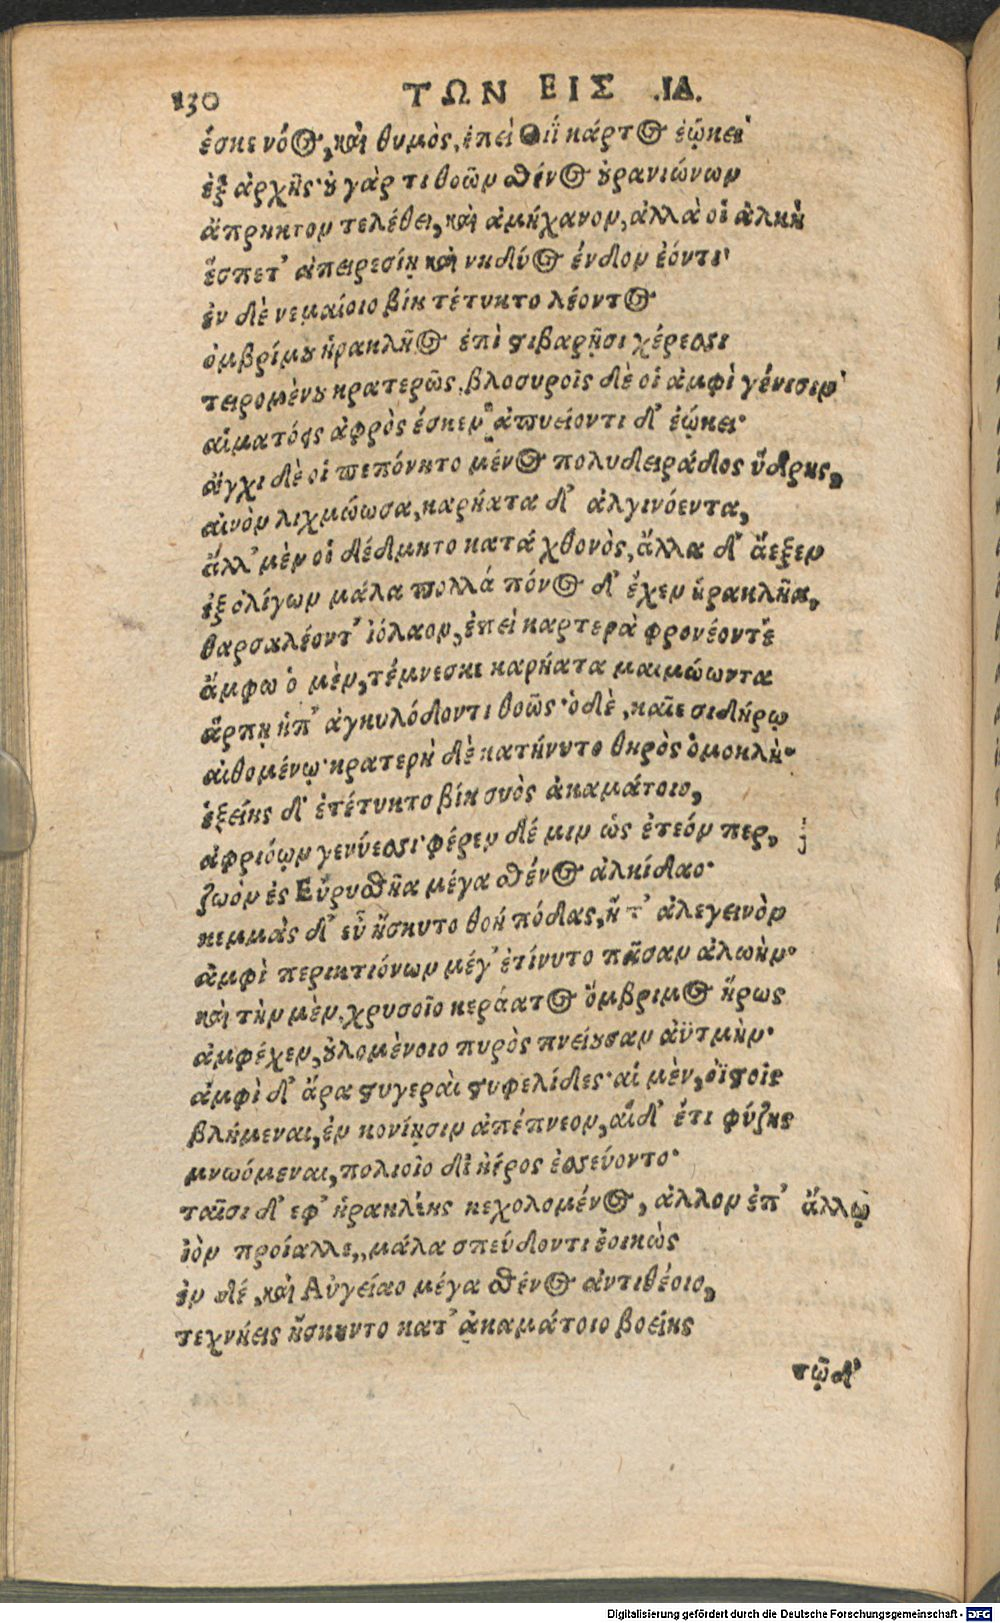 130 ΤΩΝ ΕΙΣ .ΙΔ.
ἔσκε νόος, καὶ θυμὸς, ἐπεὶ Διῒ κάρτος ἐῴκει
ἐξ ἀρχῆς· οὐ γάρ τι θοῶν σθένος οὐρανιώνων
ἄπρηκτον τελέθει, καὶ ἀμήχανον, ἀλλὰ οἱ ἀλκὴ
ἕσπετ' ἀπειρεσίη καὶ νηδύος ἔνδον ἐόντι·
ἐν δὲ νεμαίοιο βίη τέτυκτο λέοντος
ὀμβρίμου ἡρακλῆος ἐπὶ στιβαρῇσι χέρεσσι
τειρομένου κρατερῶς, βλοσυροῖς δὲ οἱ ἀμφὶ γένυσιν
αἱματόεις ἀφρὸς ἔσκεν ἀπυείοντι δ' ἐῴκει·
ἄγχι δὲ οἱ πεπόνητο μένος πολυδειράδος ὕδρης,
αἰνὸν λιχμώωσα, καρήατα δ' ἀλγινόεντα,
ἄλλ' μὲν οἱ δέδμητο κατὰ χθονὸς, ἄλλα δ' ἄεξεν
ἐξ ὀλίγων μάλα πολλά πόνος δ' ἔχεν ἡρακλῆα,
θαρσαλέοντ' ἰόλαον, ἐπεὶ καρτερὰ φρονέοντε
ἄμφω ὁ μὲν, τέμνεσκε καρήατα μαιμώωντα
ἅρπῃ ὑπ' ἀγκυλόδοντι θοῶς· ὁ δὲ, καῖε σιδήρῳ
αἰθομένῳ· κρατερὴ δὲ κατήνυτο θηρὸς ὁμοκλὴ·
ἑξείης δ' ἐτέτυκτο βίη συὸς ἀκαμάτοιο,
ἀφριόων γενύεσσι· φέρεν δέ μιν ὡς ἐτεόν περ,
ζωὸν ἐς Εὐρυσθῆα μέγα σθένος ἀλκίδαο·
κεμμὰς δ' εὖ ἤσκητο θοὴ πόδας, ἥ τ' ἀλεγεινὸν
ἀμφὶ περικτιόνων μέγ' ἐτίνυτο πᾶσαν ἀλωὴν·
καὶ τὴν μὲν, χρυσοῖο κεράατος ὄμβριμος ἥρως
ἀμφέχεν, οὐλομένοιο πυρὸς πνείουσαν ἀϋτμὴν·
ἀμφὶ δ' ἄρα στυγεραὶ στυφελίδες· αἱ μὲν, οἰϊστοῖς
βλήμεναι, ἐν κονίῃσιν ἀπέπνεον, αἱ δ' ἔτι φύζης
μνωόμεναι, πολιοῖο δι' ἠέρος ἐσσεύοντο·
ταῖσι δ' εφ' ἡρακλέης κεχολομένος, ἄλλον ἐπ' ἄλλῳ
ἰὸν προΐαλλε, μάλα σπεύδοντι ἐοικὼς
ἐν δέ, καὶ Αὐγείαο μέγα σθένος ἀντιθέοιο,
τεχνήεις ἤσκηντο κατ' ἀκαμάτοιο βοείης
τῷ δ'
Digitalisierung gefördert durch die Deutsche Forschungsgemeinschaft - DFG